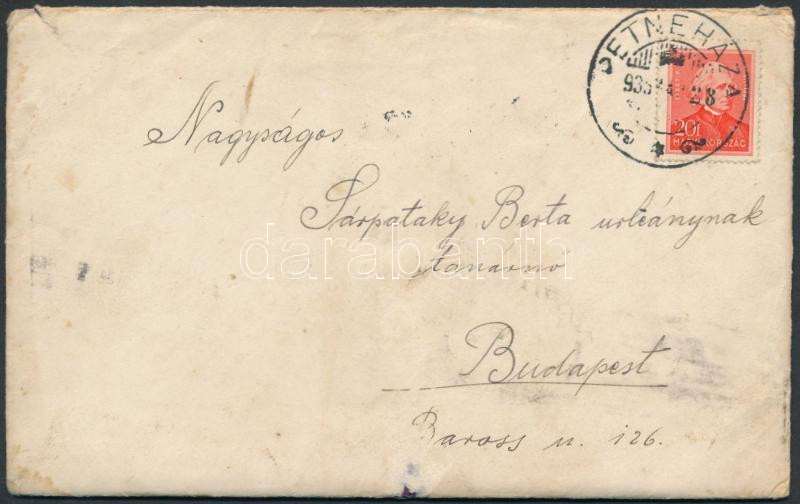 PETNEHÁZA
935 28
20f
MAGYARORSZÁG
Nagyságos
Sárpataky Berta urleánynak
tanárnő
Budapest
Baross u. 126.
darabanth